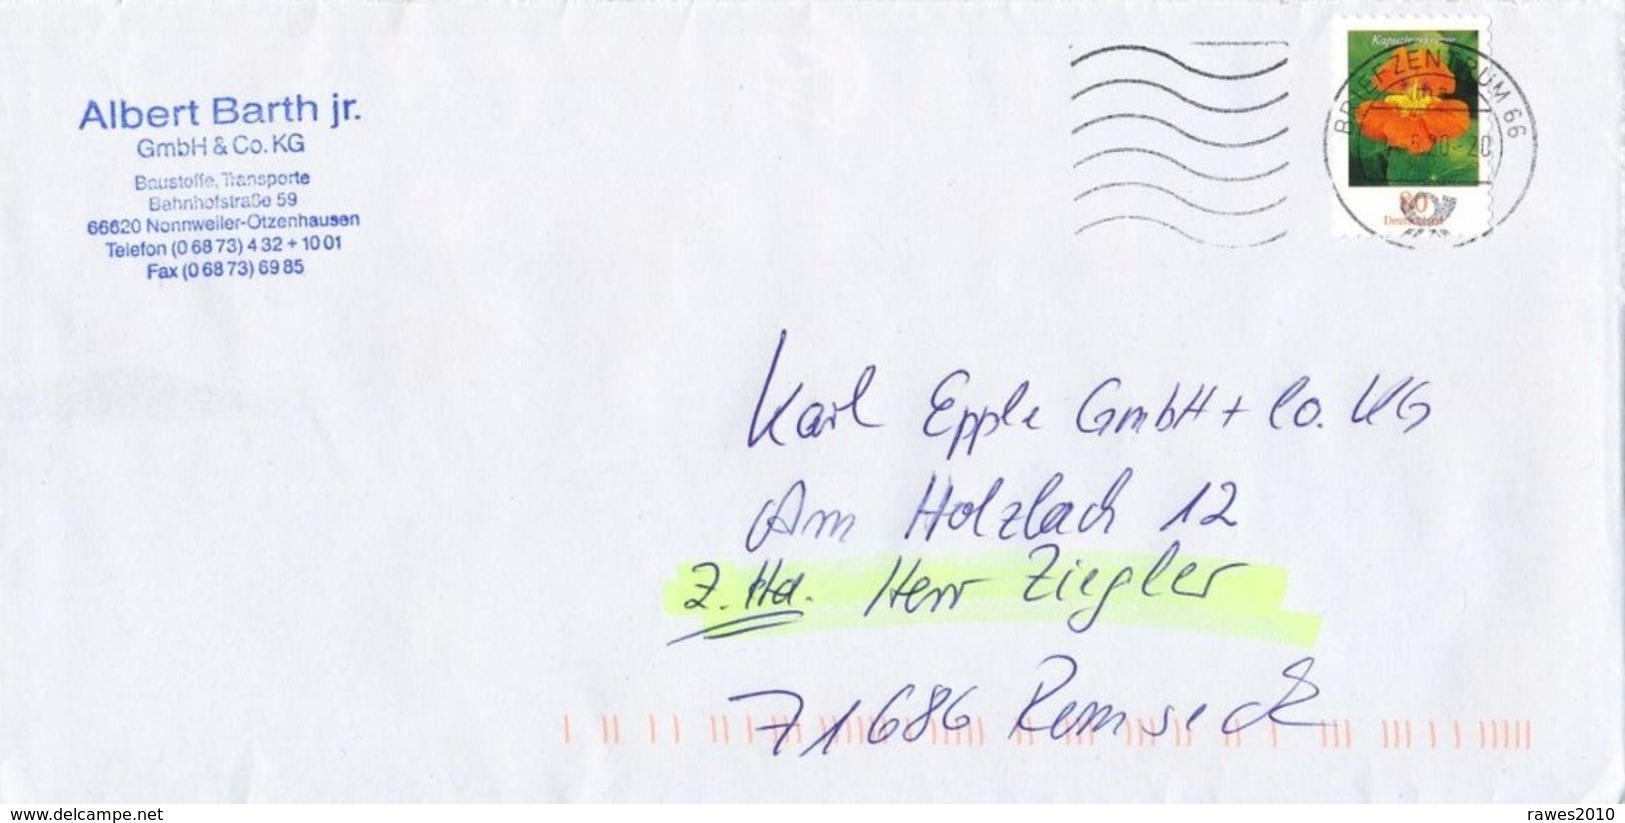 Albert Barth jr.
GmbH & Co. KG
Baustoffe, Transporte
Bahnhofstraße 59
66620 Nonnweiler-Otzenhausen
Telefon (0 68 73) 4 32 + 10 01
Fax (0 68 73) 69 85
Kapuzinerkresse
BRIEFZENTRUM 66
20-20
80
Deutschland
Karl Epple GmbH + Co. KG
Am Holzbach 12
z. Hd. Herr Ziegler
71686 Remseck
www.delcampe.net
rawes2010